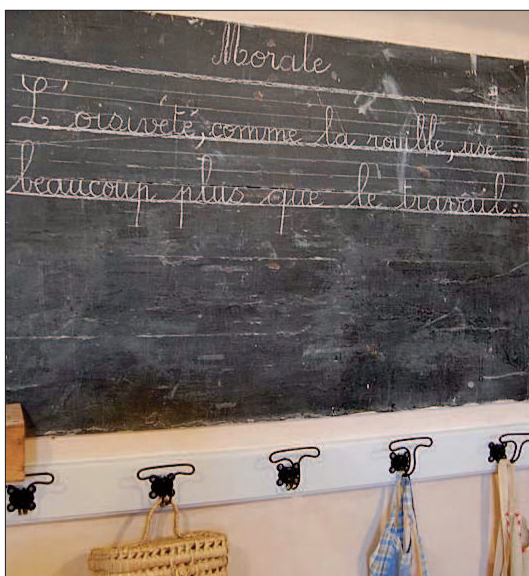 Morale
L'oisiveté, comme la rouille, use
beaucoup plus que le travail.